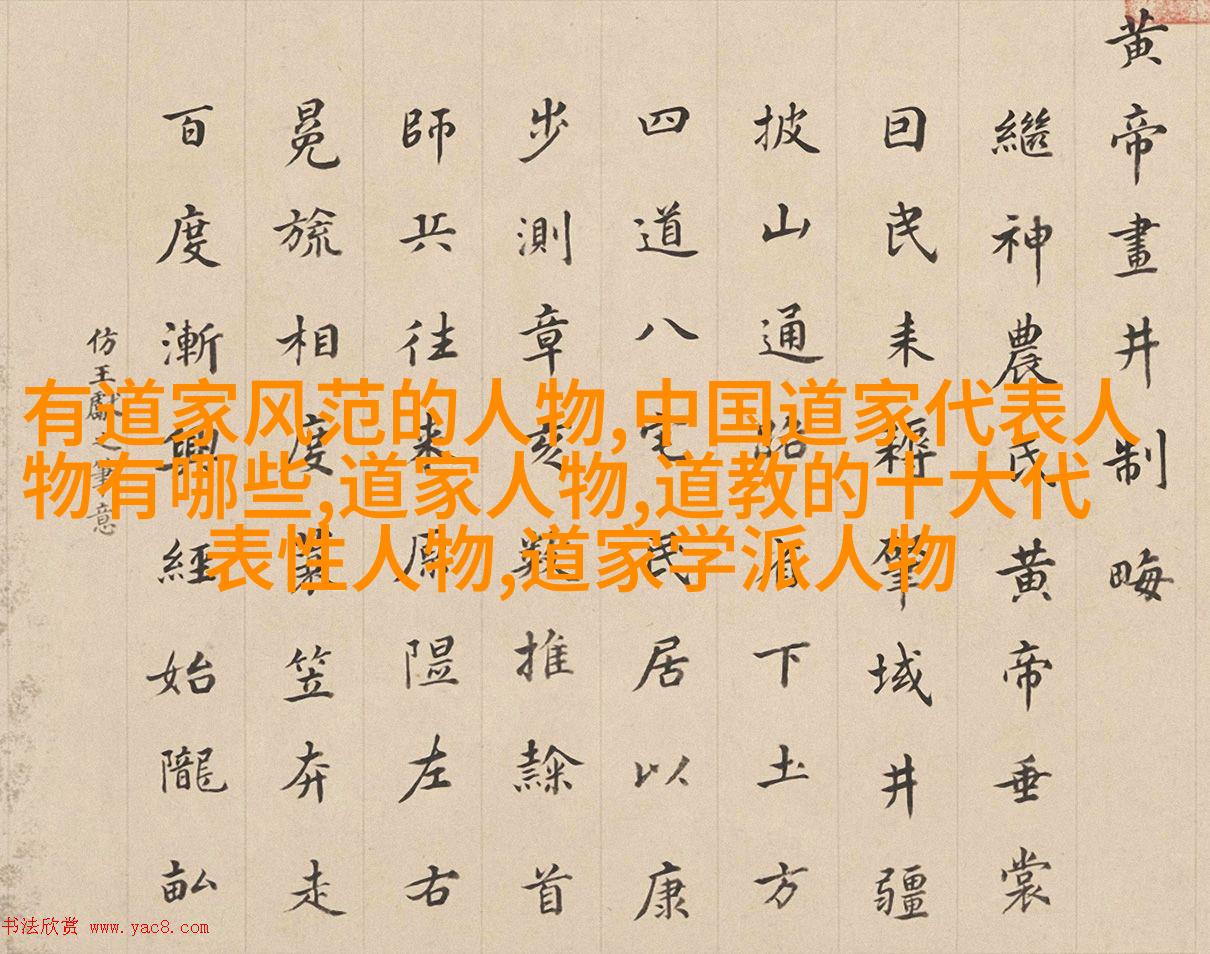 黃帝畫井制畮
繼神農氏黃帝垂裳
囙民耒耨肇域井疆
披山通路下土方
四道八宅民居以康
步測章亥數推隸首
師兵往來原隰左右
冕旒相度笠奔走
百度漸興經始隴畆
仿王獻之筆意
有道家风范的人物,中国道家代表人
物有哪些,道家人物,道教的十大代
表性人物,道家学派人物
书法欣赏 www.yac8.com